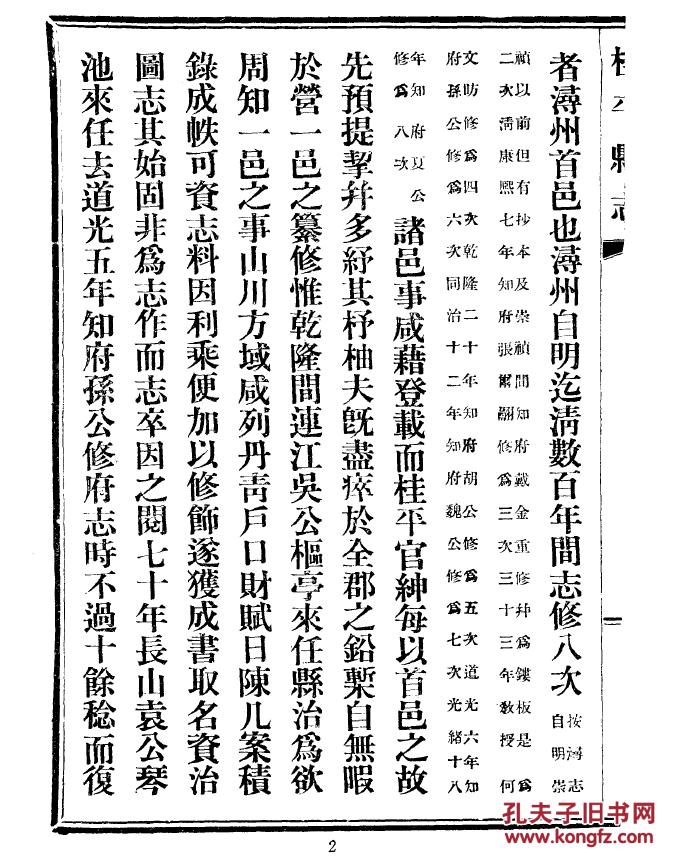 桂平縣志
者潯州首邑也潯州自明迄淸數百年間志修八次
按潯志
自明崇
禎以前但有抄本及崇禎間知府戴金重修幷爲鏤板是爲
二次淸康熙七年知府張爾翮修爲三次三十三年敎授何
文昉修爲四次乾隆二十年知府胡公修爲五次道光六年知
府孫公修爲六次同治十二年知府魏公修爲七次光緖十八
年知府夏公
修爲八次
諸邑事咸藉登載而桂平官紳每以首邑之故
先預提挈幷多紓其杼柚夫旣盡瘁於全郡之鉛槧自無暇
於營一邑之纂修惟乾隆間連江吳公樞亭來任縣治爲欲
周知一邑之事山川方域咸列丹靑戶口財賦日陳几案積
錄成帙可資志料因利乘便加以修飾遂獲成書取名資治
圖志其始固非爲志作而志卒因之閱七十年長山袁公琴
池來任去道光五年知府孫公修府志時不過十餘稔而復
2
孔夫子旧书网
www.kongfz.com